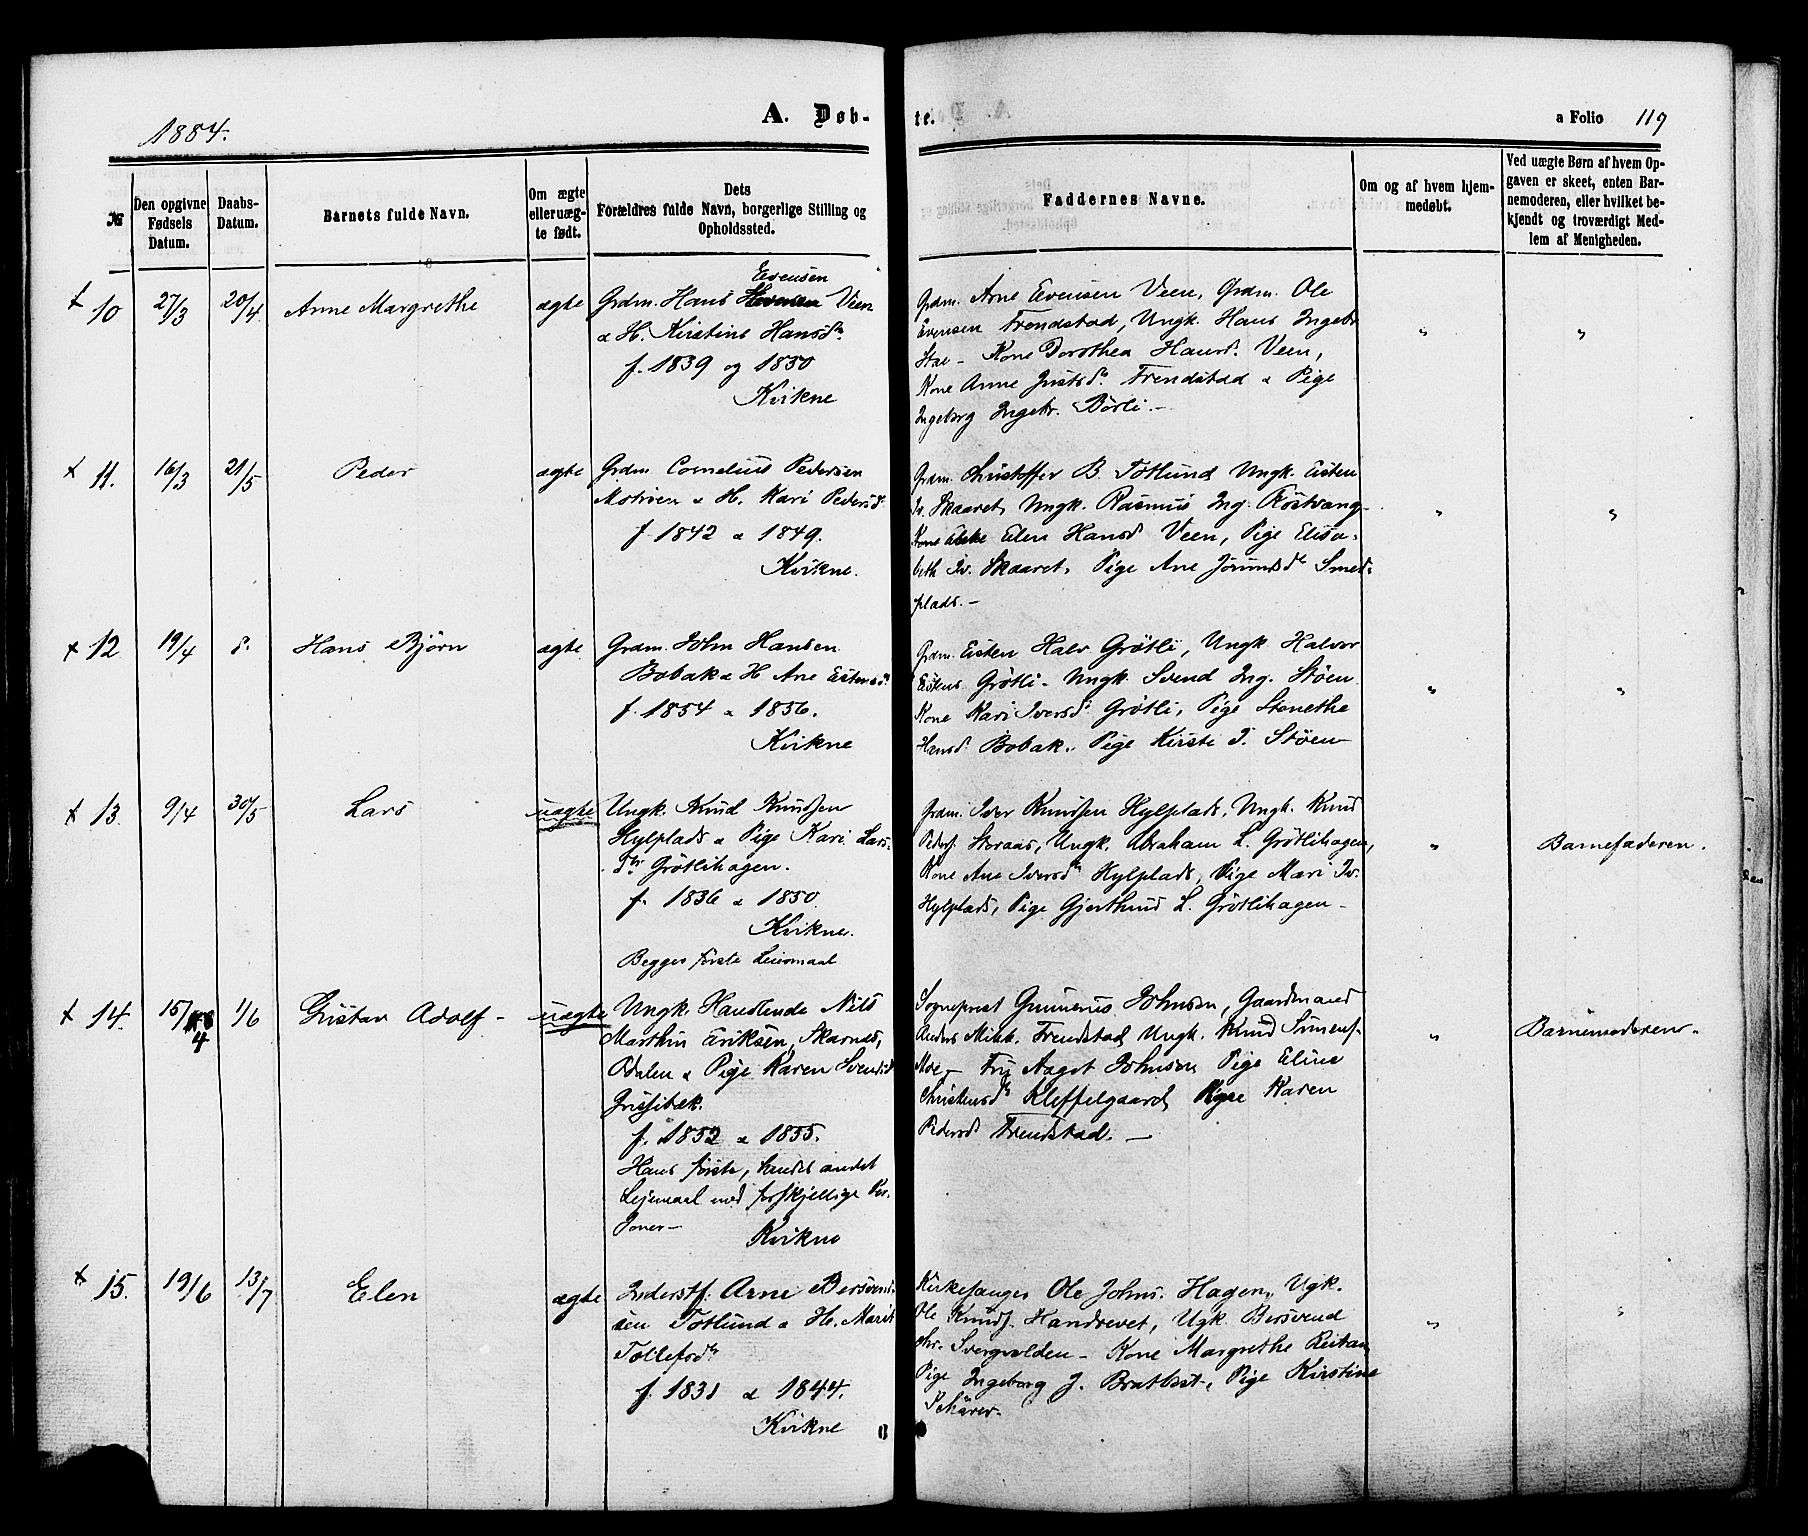 1884.
A. Døb-
te.
a Folio 119
№
Den opgivne Fødsels Datum.
Daabs-Datum.
Barnets fulde Navn.
Om ægte eller uæg-te født.
Dets Forældres fulde Navn, borgerlige Stilling og Opholdssted.
Faddernes Navne.
Om og af hvem hjem-medøbt.
Ved uægte Børn af hvem Op-gaven er skeet, enten Bar-nemoderen, eller hvilket be-kjendt og troværdigt Med-lem af Menigheden.
10 27/3 20/4 Anne Margrethe ægte
Evensen
Grdm. Hans Veen
& H. Kirstine Hansd.
f. 1839 og 1850
Kvikne
Grdm. Arne Evensen Veen, Grdm. Ole
Evensen Frendstad, Ungk. Hans Ingebr.
Stae - Kone Dorothea Hansd. Veen,
Kone Anne Justsd. Frendstad & Pige
Ingeborg Ingebr. Börli.-
" "
11. 16/3 21/5 Peder ægte
Grdm Cornelius Pedersen
Motröen & H. Kari Pedersd.
f. 1842 & 1849.
Kvikne.
Grdm. Christoffer B. Totlund Ungk. Eisten
Iv. Skaaret, Ungk. Rasmus Ing. Röstvang
Kone Elen Hansd Veen, Pige Elisa-
beth Iv. Skaaret, Pige Ane Jörundsd. Smed-
plads.-
" "
12 19/4 d. Hans Bjørn ægte
Grdm. John Hansen
Bobak & H Ane Eistensd.
f. 1854 & 1856.
Kvikne
Grdm. Eisten Halv Grötli, Ungk Halvor
Eistens Grötli - Ungk Svend Ing. Stöen
Kone Kari Iversd. Grötli, Pige Stenethe
Hansd. Bobak, Pige Kirsti J. Stöen
" "
13. 9/4 30/5 Lars uægte
Ungk. Knud Knudsen
Hylplads & Pige Kari Lars-
dtr Grötlihagen.
f. 1836 & 1850.
Kvikne.
Begges første Leiermaal
Grdm. Iver Knudsen Hylplads, Ungk. Knud
Peders. Storaas, Ungk. Abraham L. Grötlihagen,
Kone Ane Iversd. Hylplads, Pige Mari Iv.
Hylplads, Pige Gjertrud L. Grötlihagen -
" Barnefaderen.
14. 15/4 1/6 Gustav Adolf - uægte
Ungk. Handlende Nils
Marthin Eriksen, Skarnes,
Odalen & Pige Karen Svendsd
Grissibæk.
f. 1852 & 1855.
Hans første, hendes andet
Lejemaal med forskjellige Per-
soner -
Kvikne
Sogneprest Gunerius Johnsen, Gaardmand
Anders Mikk. Frendstad Ungk. Knud Simens.
Moe - Fru Aagot Johnsen Pige Eline
Christensd. Kleffelgaard, Pige Karen
Pedersd. Frendstad. -
" Barnemoderen.
15. 19/6 13/7 Elen ægte
Inderstf: Arne Bersvend-
sen Totlund & H. Marit
Tollefsd.
f. 1831 & 1844.
Kvikne
Kirkesanger Ole Johns. Hagen, Ugk.
Ole Knuds. Handrevet, Ugk. Bersvend
Chr. Svergvolden - Kone Margrethe Reitan
Pige Ingeborg J. Bratbet, Pige Kirstine
Schärer.
" "